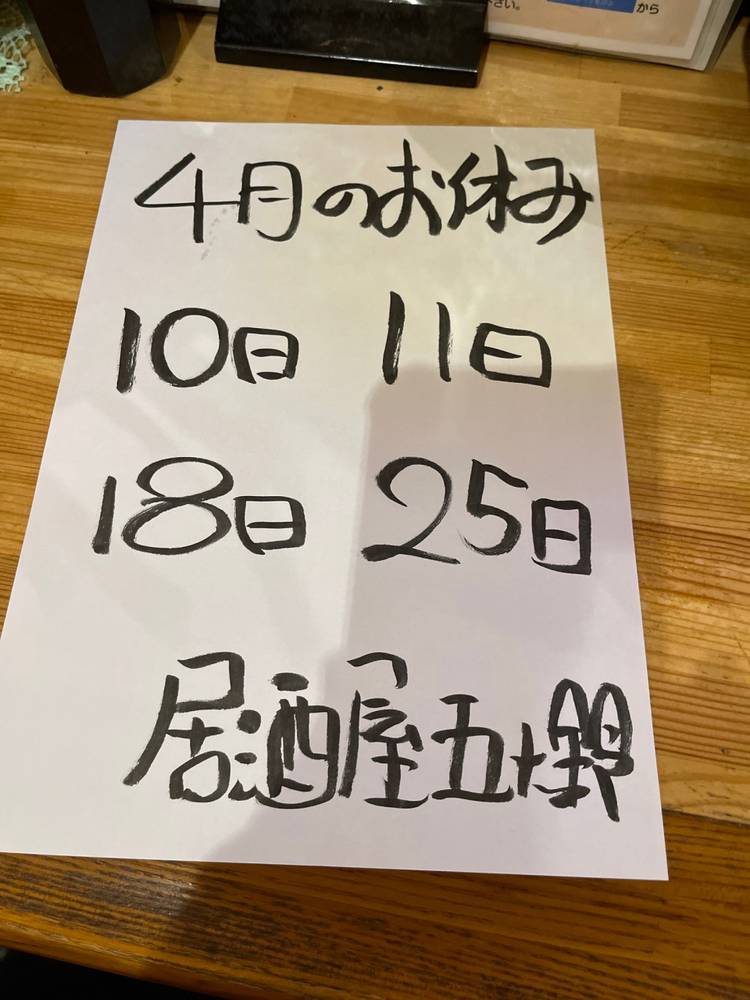 さい。
から
4月のお休み
10日 11日
18日 25日
居酒屋五十鈴